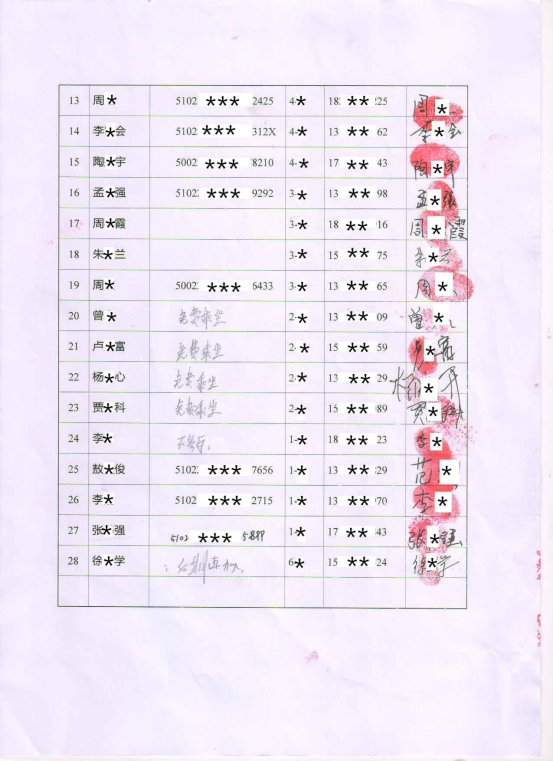 13 周* 5102 *** 2425 4-* 18 ** 25 周*
14 李*会 5102 *** 312X 4-* 13 ** 62 李*会
15 陶*宇 5002 *** 8210 4-* 17 ** 43 陶*宇
16 孟*强 5102 *** 9292 3-* 13 ** 98 孟*强
17 周*霞 3-* 18 ** 16 周*霞
18 朱*兰 3-* 15 ** 75 朱*兰
19 周* 5002 *** 6433 3-* 13 ** 65 周*
20 曾* 免费乘坐 2-* 13 ** 09 曾*
21 卢*富 免费乘坐 2-* 15 ** 59 *富
22 杨*心 免费乘坐 2-* 13 ** 29 杨*
23 贾*科 免费乘坐 2-* 15 ** 89 贾*科
24 李* 不参与 1-* 18 ** 23 李*
25 敖*俊 5102 *** 7656 1-* 13 ** 29 范*
26 李* 5102 *** 2715 1-* 13 ** 70 李*
27 张*强 5102 *** 1-* 17 ** 43 张*强
28 徐*学 后期加入 6-* 15 ** 24 徐*学